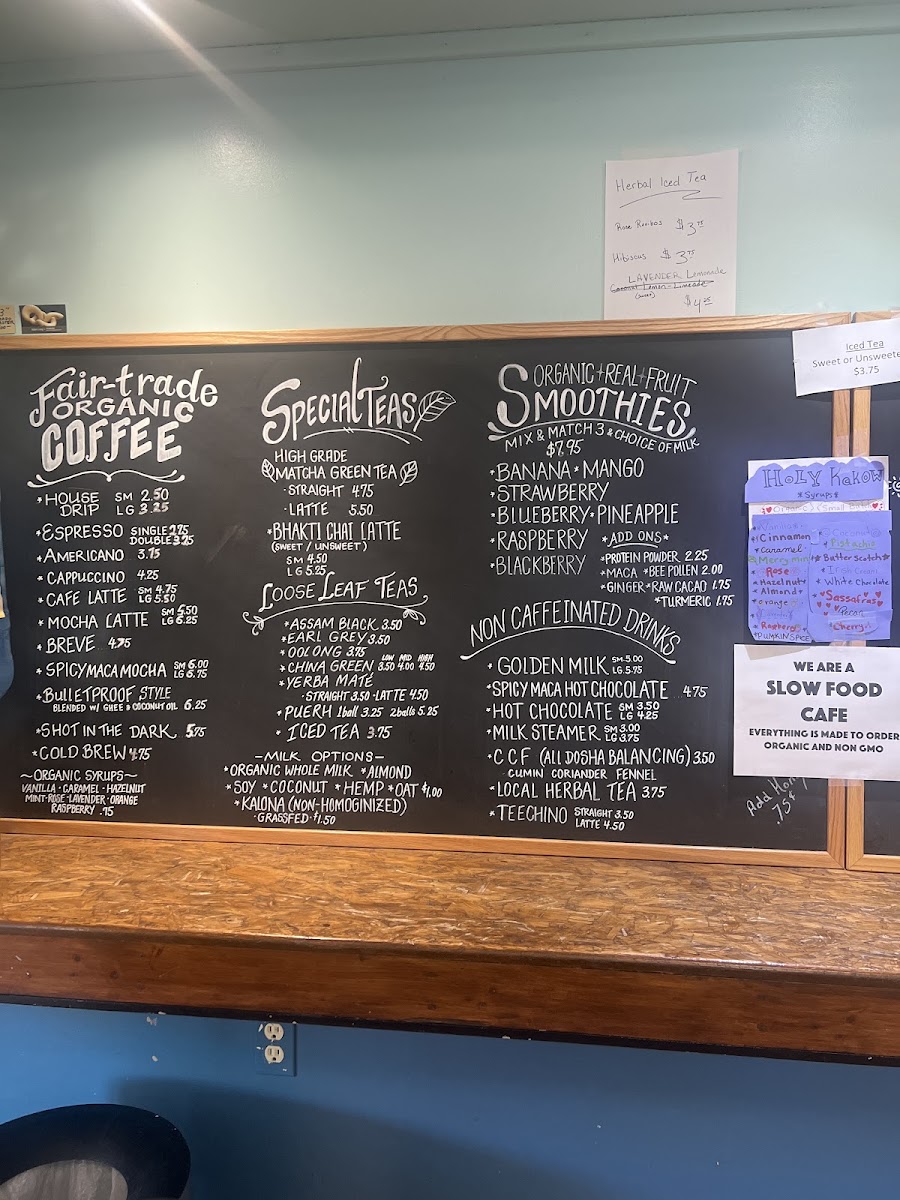 Herbal Iced Tea
Rose Rooibos $3.75
Hibiscus $3.75
LAVENDER Lemonade
Coconut Lemon-Limeade
(sweet)
$4.25
Iced Tea
Sweet or Unsweete
$3.75
Fair-trade
ORGANIC
COFFEE
*HOUSE DRIP SM 2.50
LG 3.25
*ESPRESSO SINGLE 2.75
DOUBLE 3.25
*AMERICANO 3.75
*CAPPUCCINO 4.25
*CAFE LATTE SM 4.75
LG 5.50
*MOCHA LATTE SM 5.50
LG 6.25
*BREVE 4.75
*SPICY MACA MOCHA SM 6.00
LG 6.75
*BULLETPROOF STYLE
BLENDED W/ GHEE & COCONUT OIL 6.25
*SHOT IN THE DARK 5.75
*COLD BREW 4.75
~ORGANIC SYRUPS~
VANILLA·CARAMEL·HAZELNUT
MINT·ROSE·LAVENDER·ORANGE
RASPBERRY .75
SPECIALTEAS
HIGH GRADE
MATCHA GREEN TEA
·STRAIGHT 4.75
·LATTE 5.50
*BHAKTI CHAI LATTE
(SWEET / UNSWEET)
SM 4.50
LG 5.25
LOOSE LEAF TEAS
*ASSAM BLACK 3.50
*EARL GREY 3.50
*OOLONG 3.75
LOW MID HIGH
*CHINA GREEN 3.50 4.00 4.50
*YERBA MATÉ
·STRAIGHT 3.50 ·LATTE 4.50
*PUERH 1ball 3.25 2balls 5.25
*ICED TEA 3.75
—MILK OPTIONS—
*ORGANIC WHOLE MILK *ALMOND
*SOY *COCONUT *HEMP *OAT $1.00
*KALONA (NON-HOMOGINIZED)
·GRASSFED·$1.50
ORGANIC+REAL+FRUIT
SMOOTHIES
MIX & MATCH 3 & CHOICE OF MILK
$7.95
*BANANA *MANGO
*STRAWBERRY
*BLUEBERRY *PINEAPPLE
*RASPBERRY
*BLACKBERRY
*ADD ONS*
*PROTEIN POWDER 2.25
*MACA *BEE POLLEN 2.00
*GINGER *RAW CACAO 1.75
*TURMERIC 1.75
NON CAFFEINATED DRINKS
*GOLDEN MILK SM 5.00
LG 5.75
*SPICY MACA HOT CHOCOLATE ...4.75
*HOT CHOCOLATE SM 3.50
LG 4.25
*MILK STEAMER SM 3.00
LG 3.75
*CCF (ALL DOSHA BALANCING) 3.50
CUMIN CORIANDER FENNEL
*LOCAL HERBAL TEA 3.75
*TEECHINO STRAIGHT 3.50
LATTE 4.50
HOLY KAKOW
*Syrups*
Vanilla
Cinnamon
Caramel
Merry mint
Rose
Hazelnut
Almond
Orange
Raspberry
PUMPKIN SPICE
Pistachio
*Butterscotch*
Irish Cream
*White Chocolate
Sassafras
Pecan
Cherry
WE ARE A
SLOW FOOD
CAFE
EVERYTHING IS MADE TO ORDER
ORGANIC AND NON GMO
Add Honey
.75¢